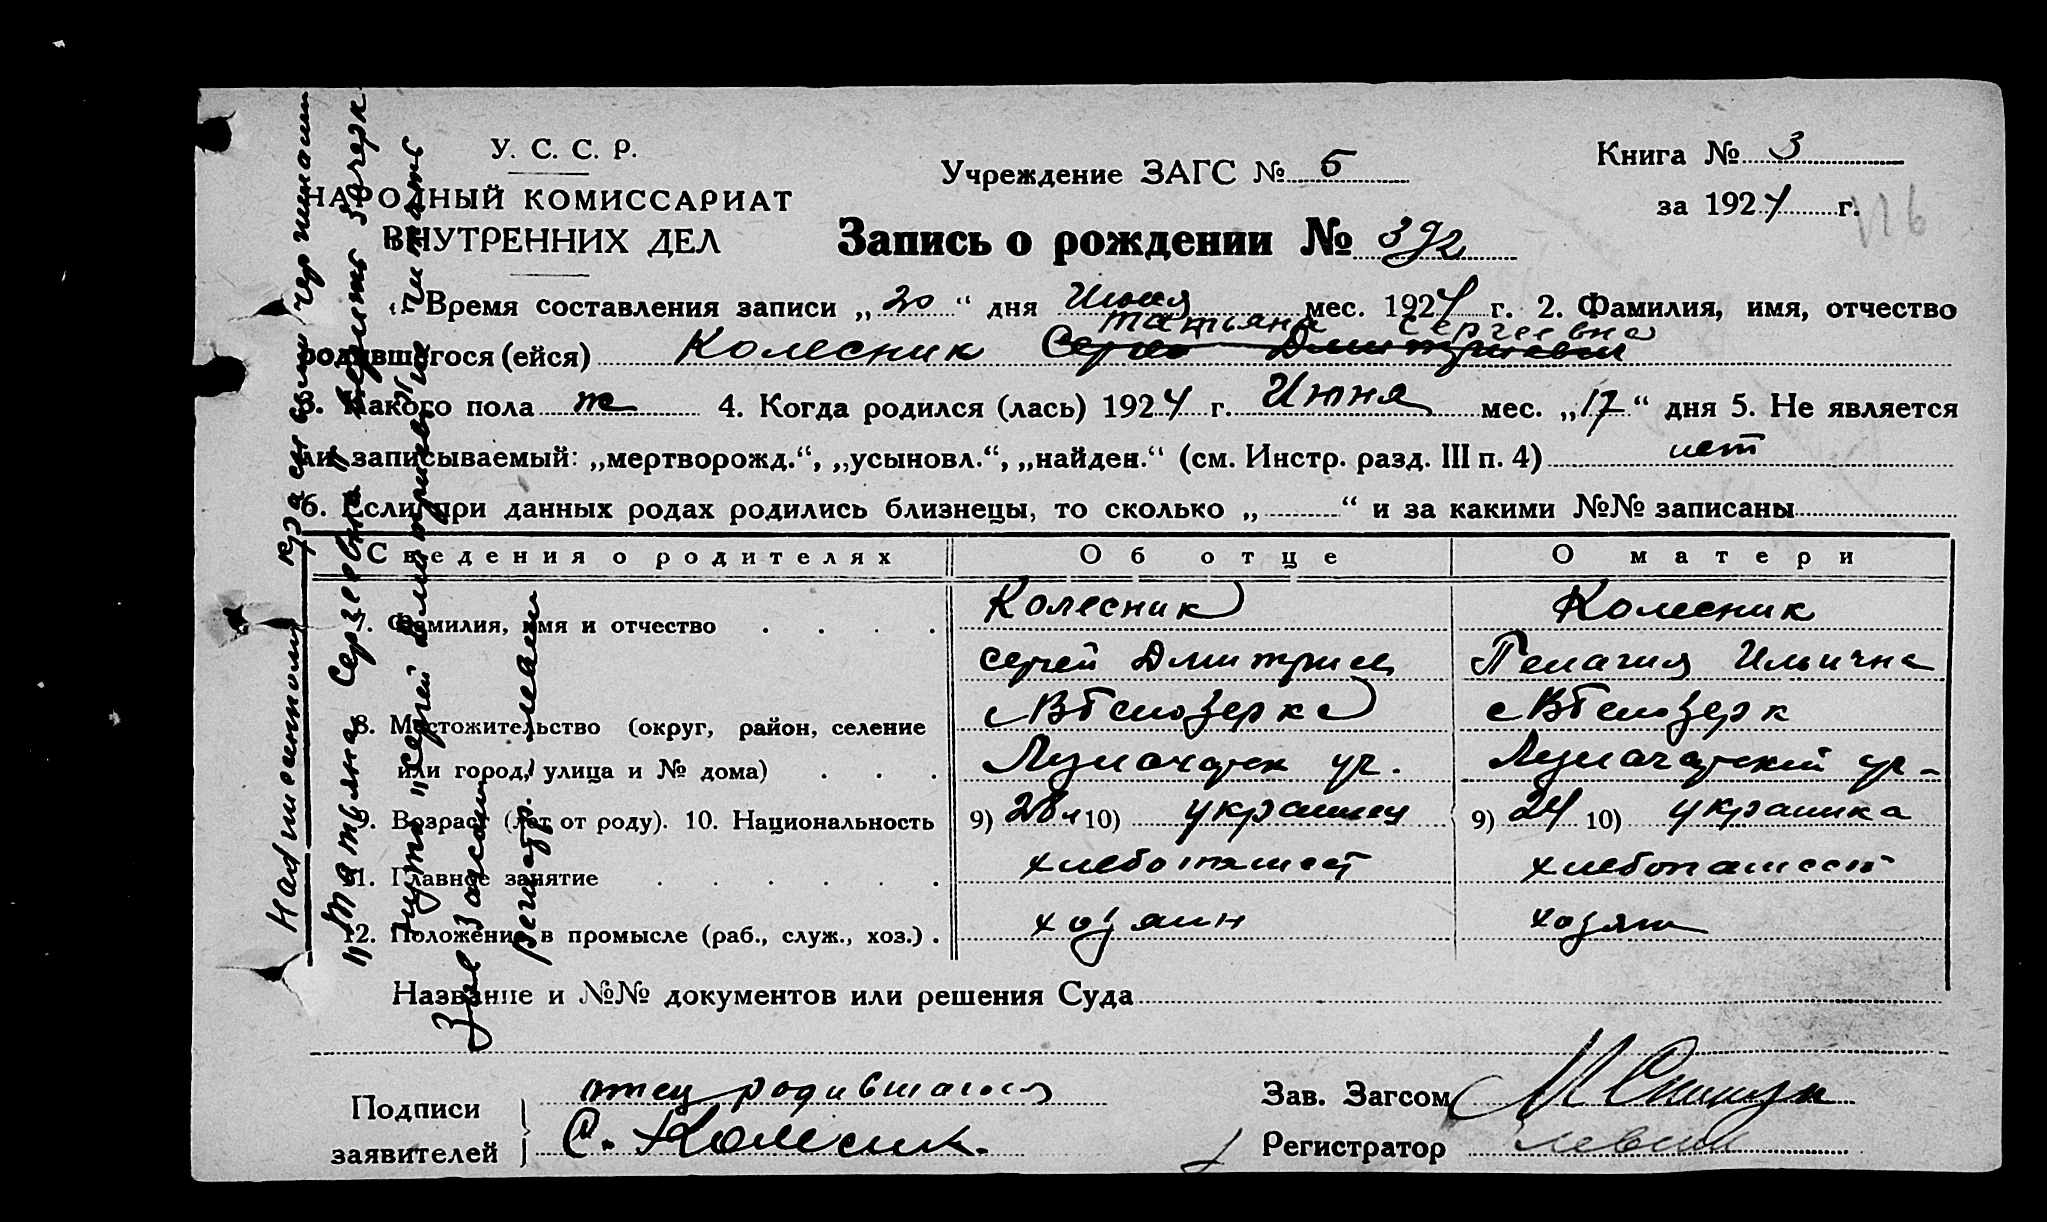 У. С. С. Р.
НАРОДНЫЙ КОМИССАРИАТ
ВНУТРЕННИХ ДЕЛ
Учреждение ЗАГС № 5
Книга № 3
за 1924 г.
116
Запись о рождении № 392
1. Время составления записи „20“ дня Июня мес. 1924 г. 2. Фамилия, имя, отчество
Татьяна Сергеевна
родившегося (ейся) Колесник Сергей Дмитриевич
3. Какого пола ж 4. Когда родился (лась) 1924 г. Июня мес. „17“ дня 5. Не является
ли записываемый: „мертворожд.“, „усыновл.“, „найден.“ (см. Инстр. разд. III п. 4) нет
6. Если при данных родах родились близнецы, то сколько „ “ и за какими №№ записаны
Сведения о родителях Об отце О матери
7. Фамилия, имя и отчество Колесник Колесник
Сергей Дмитриев Пелагия Ильична
8. Местожительство (округ, район, селение с ВБелозерка с ВБелозерк
или город, улица и № дома)
9. Возраст (лет от роду). 10. Национальность 9) 28 л 10) украинец 9) 24 10) украинка
11. Главное занятие хлебопашест хлебопашест
12. Положение в промысле (раб., служ., хоз.) хозяин хозяи
Название и №№ документов или решения Суда
Подписи заявителей отец родившагося
С. Колесник.
Зав. Загсом
Регистратор
Надписанному красными чернилами
„Татьяна Сергеевна“ верить зачерк
нуто „Сергей Дмитриевич“ не читать
Зав Загсом
регистр.